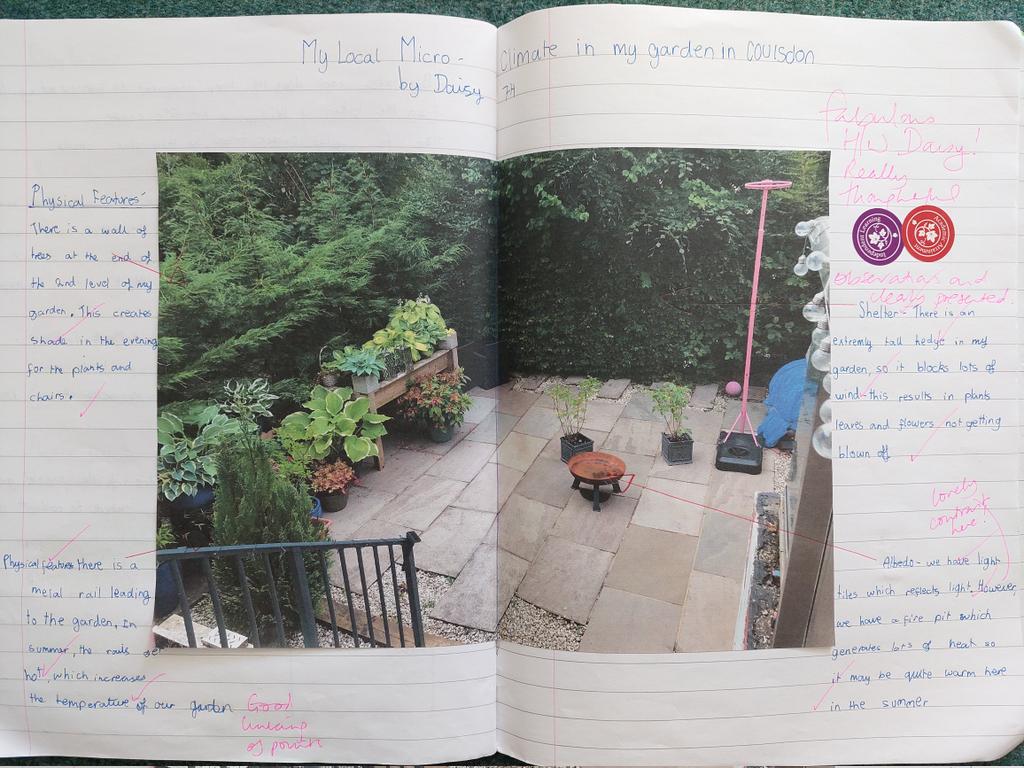 My Local Micro-climate in my garden in Coulsdon
by Daisy 7H
Fabulous
H/W Daisy!
Really
thoughtful
observations and
clearly presented.
Physical Features-
There is a wall of
trees at the end of
the 2nd level of my
garden. This creates
shade in the evening
for the plants and
chairs.
Independent Learning
Academic Attainment
Shelter- There is an
extremly tall hedge in my
garden, so it blocks lots of
wind-this results in plants
leaves and flowers not getting
blown off
Physical features there is a
metal rail leading
to the garden, in
summer, the rails get
hot, which increases
the temperature of our garden
Good
linking
of points
Lovely
contrast
here!
Albedo- we have light
tiles which reflects light. However,
we have a fire pit which
generates lots of heat so
it may be quite warm here
in the summer